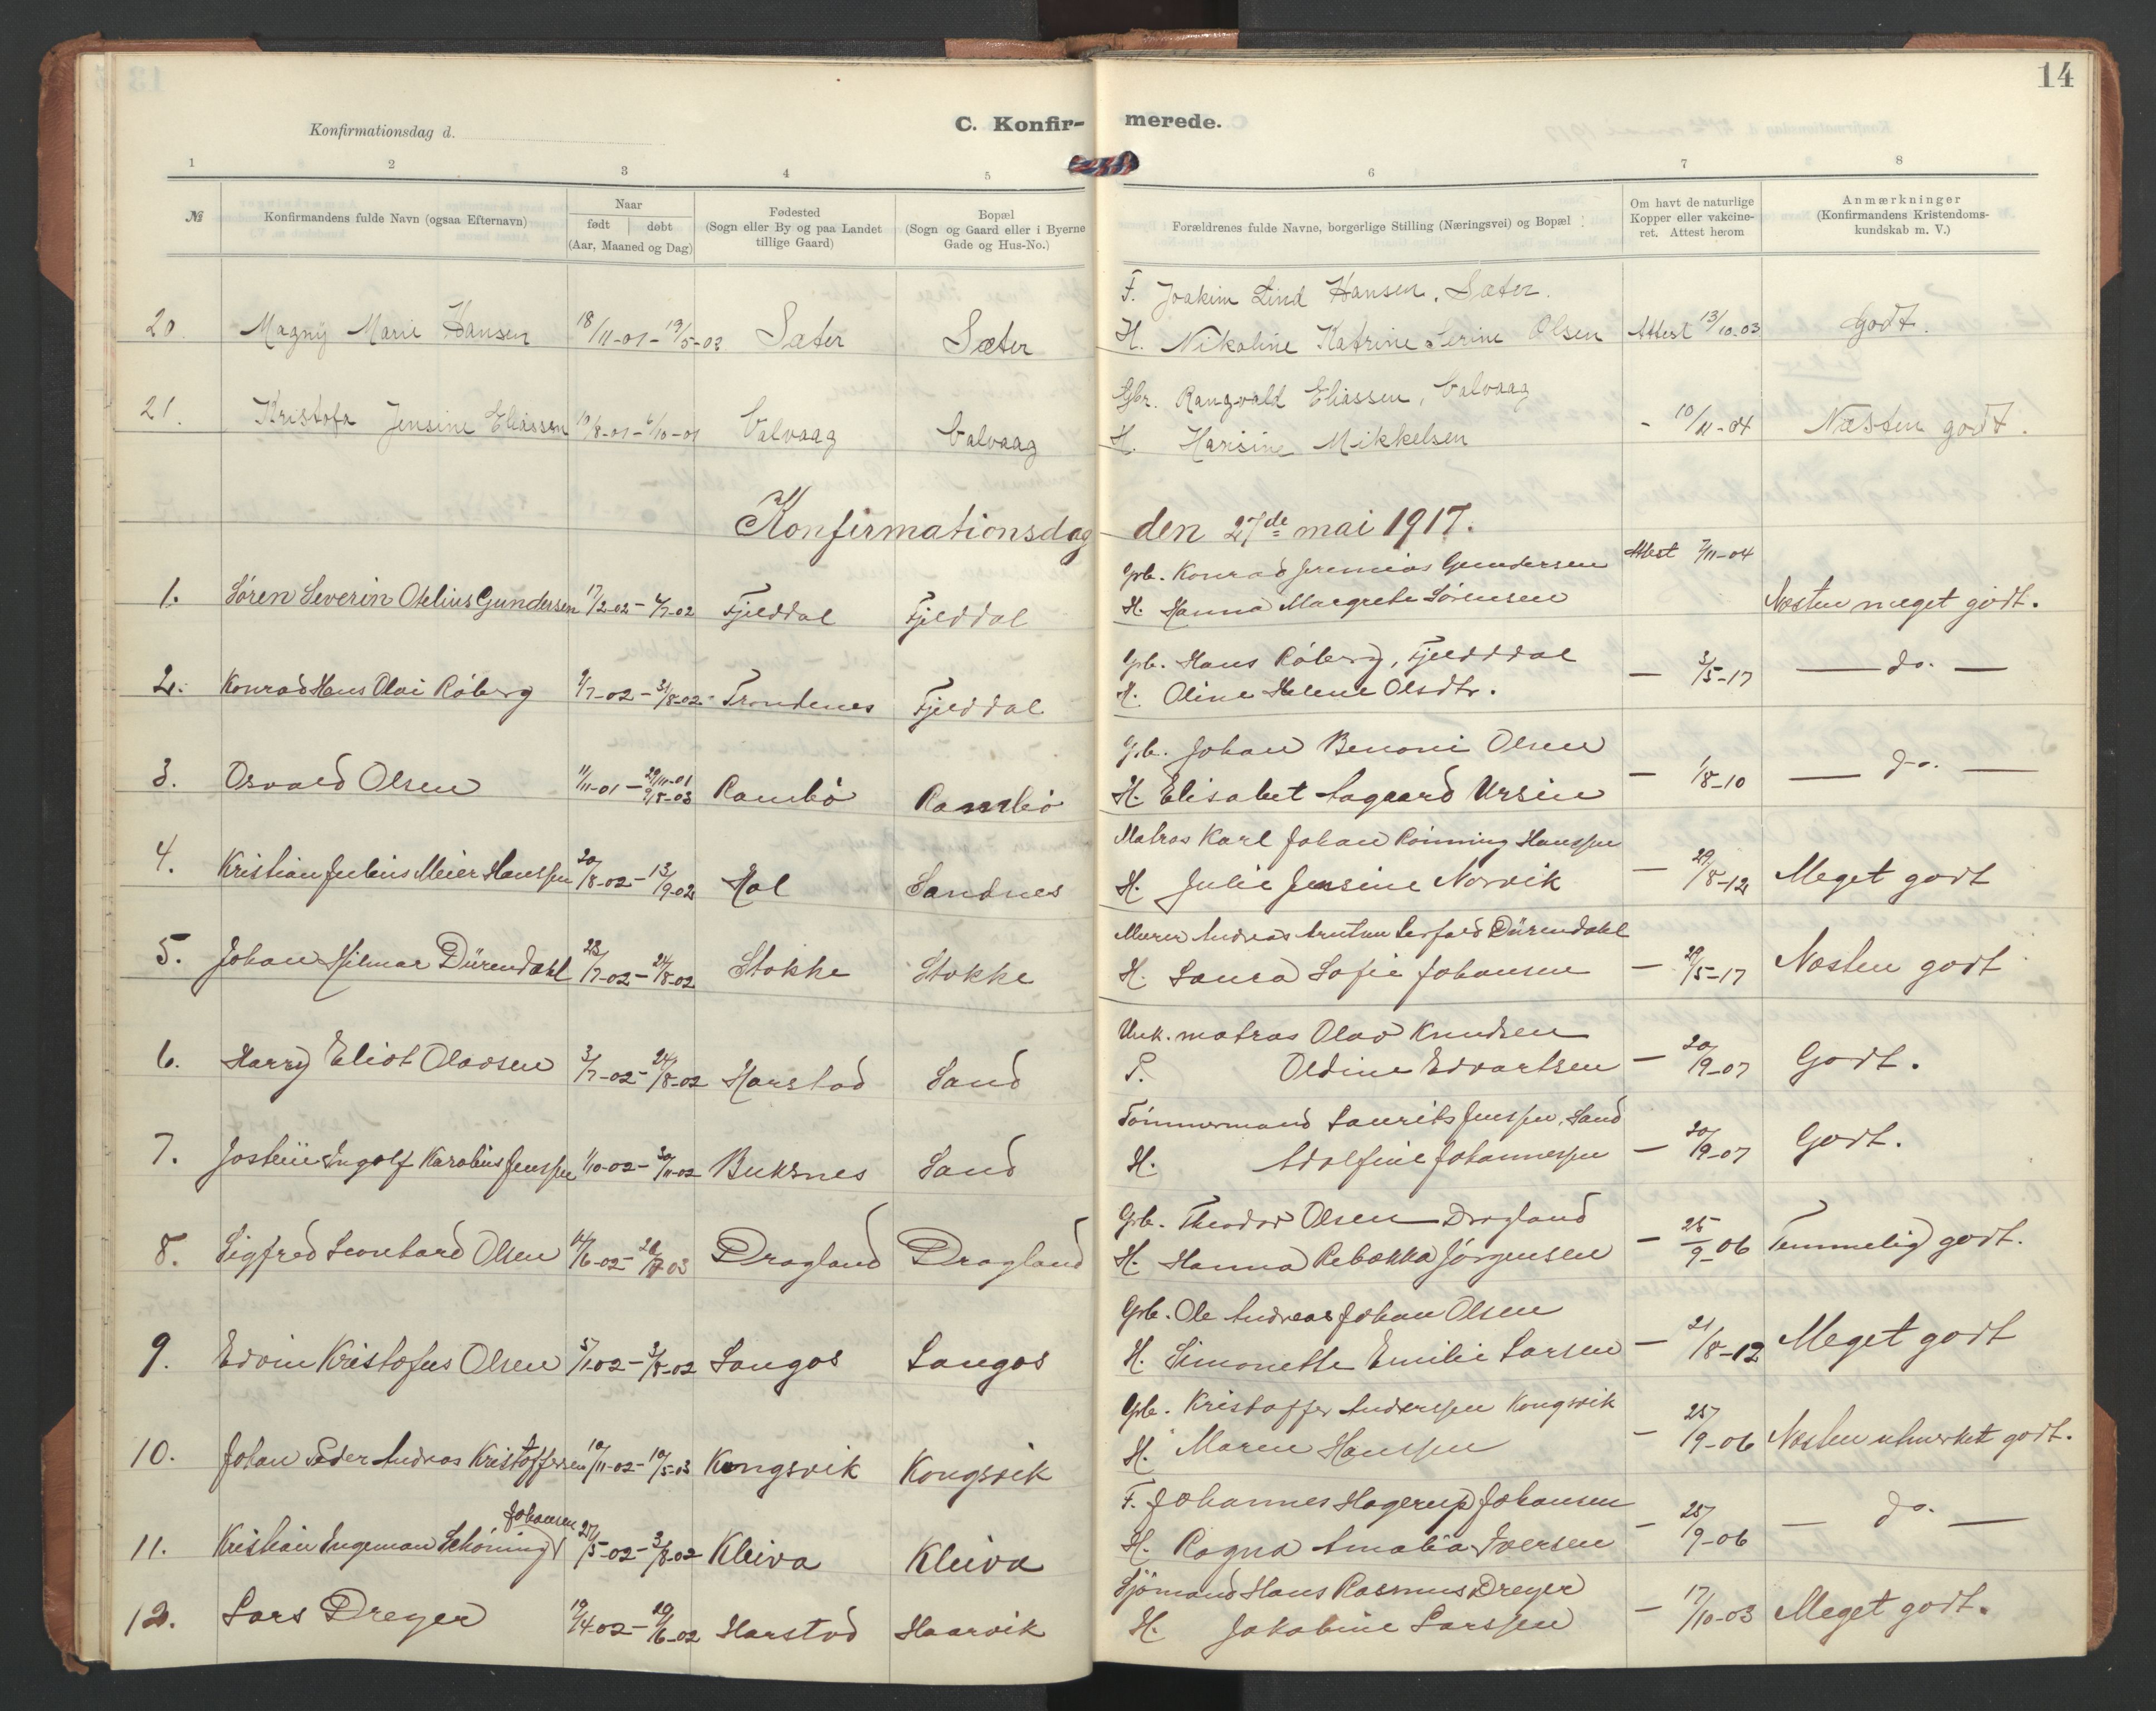 14
Konfirmationsdag d.
C. Konfir- merede.
1 2 3 4 5 6 7 8
№
Konfirmandens fulde Navn (ogsaa Efternavn)
Naar
født | døbt
(Aar, Maaned og Dag)
Fødested
(Sogn eller By og paa Landet
tillige Gaard)
Bopæl
(Sogn og Gaard eller i Byerne
Gade og Hus-No.)
Forældrenes fulde Navne, borgerlige Stilling (Næringsvei) og Bopæl
Om havt de naturlige
Kopper eller vakcine-
ret. Attest herom
Anmærkninger
(Konfirmandens Kristendoms-
kundskab m. V.)
F. Joakim Lind Hansen, Sæter.
20. Magny Marie Hansen 18/11-01 - 19/5-02 Sæter Sæter H. Nikoline Katrine Serine Olsen Attest 13/10-03 Godt.
Gbr. Rangvald Eliassen, Valvaag
21. Kristofa Jensine Eliassen 10/8-01 - 6/10-01 Valvaag Valvaag H. Hansine Mikkelsen - 10/11-04 Næsten godt.
Konfirmationsdag den 27de mai 1917.
Gb. Konrad Jeremias Gundersen Attest 7/11-04
1. Sören Severin Otelius Gundersen 17/2-02 - 6/7-02 Fjelddal Fjelddal H. Hanna Margrete Sörensen Næsten meget godt.
Gb. Hans Råberg, Fjelddal
2. Konrad Hans Olai Råberg 9/7-02 - 31/8-02 Trondenes Fjelddal H. Oline Helene Olsdtr. - 3/5-17 - do. -
Gb. Johan Benoni Olsen
3. Osvald Olsen 11/11-01 - 29/11-01 9/8-03 Rambö Rambö H. Elisabet Aagaard Ursin - 1/8-10 - do. -
Matros Karl Johan Rönning Hanssen
4. Kristian Julius Meier Hanssen 20/8-02 - 13/9-02 Hol Sandnes H. Julie Jensine Norvik - 29/8-12 Meget godt
Murer Andreas Dürendahl
5. Johan Hilmar Dürendahl 23/7-02 - 24/8-02 Stokke Stokke H. Laura Sofie Johansen - 29/5-17 Næsten godt
Unk. matros Olav Knudsen
6. Harry Eliot Olavsen 3/7-02 - 24/8-02 Harstad Sand P. Oldine Edvartsen - 20/9-07 Godt.
Tömmermand Laurits Jenssen, Sand
7. Jostein Ingolf Karolius Jenssen 1/10-02 - 30/11-02 Buksnes Sand H. Adolfine Johannessen - 20/9-07 Godt.
Gb. Theodor Olsen Dragland
8. Sigfred Leonhard Olsen 14/6-02 - Dragland Dragland H. Hanna Rebekka Jörgensen - 25/9-06 Temmelig godt.
Gb. Ole Andreas Johan Olsen
9. Edvin Kristofus Olsen 5/1-02 - 3/8-02 Sangos Sangos H. Simonette Emilie Larsen - 21/8-12 Meget godt
Gb. Kristoffer Anderssen Kongsvik
10. Johan Peder Andreas Kristoffersen 10/11-02 - 10/5-03 Kongsvik Kongsvik H. Maren Hanssen - 25/9-06 Næsten utmerket godt.
F. Johannes Hagerup Johansen
Johansen
11. Kristian Ingeman Schöning 27/5-02 - 3/8-02 Kleiva Kleiva H. Ragna Amalia Iversen - 25/9-06 - do. -
Sjömand Hans Rasmus Dreyer
12. Lars Dreyer 19/4-02 - 29/6-02 Harstad Haarvik H. Jakobine Larssen - 17/10-03 Meget godt.